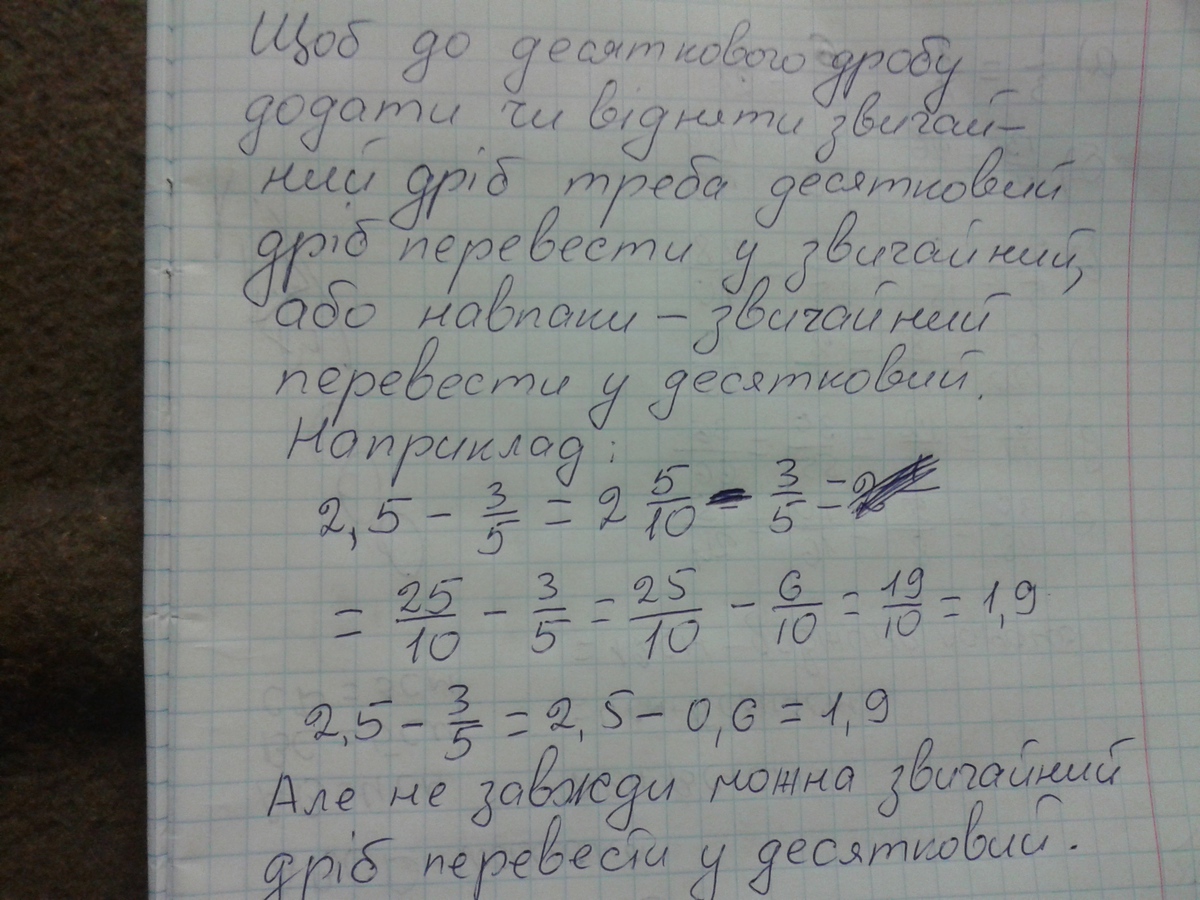 Щоб до десяткового дробу
додати чи відняти звичай-
ний дріб треба десятковий
дріб перевести у звичайний,
або навпаки - звичайний
перевести у десятковий.
Наприклад:
2,5 - 3/5 = 2 5/10 - 3/5 =
= 25/10 - 3/5 = 25/10 - 6/10 = 19/10 = 1,9
2,5 - 3/5 = 2,5 - 0,6 = 1,9
Але не завжди можна звичайний
дріб перевести у десятковий.